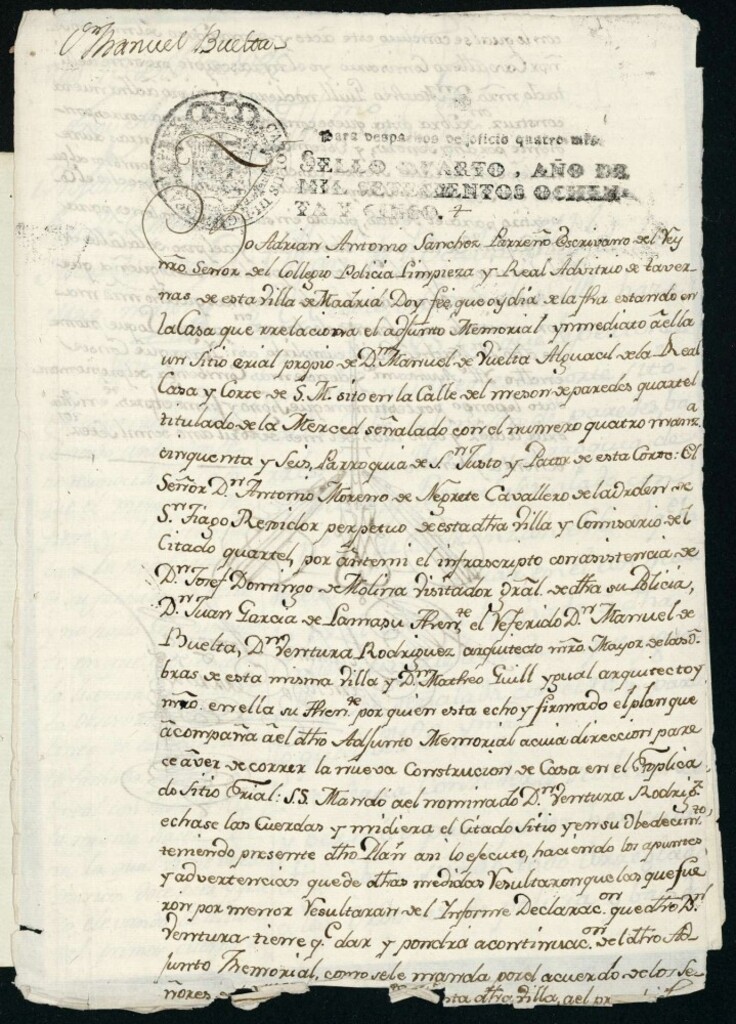 Dn Manuel Buelta
para despachos de oficio quatro mrs
SELLO QUARTO, AÑO DE
MIL SETECIENTOS OCHEN-
TA Y CINCO.
Yo Adrian Antonio Sanchez Parreño Escrivano del Rey
nro Señor del Collegio Policia Limpieza y Real Advitrio de taver-
nas de esta villa de Madrid Doy fee que oy dia de la fha estando en
la Casa que rrelaciona el adjunto Memorial ynmediato a ella
un Sitio erial propio de Dn Manuel de Vuelta Alguacil de la Real
Casa y Corte de S. M. sito en la Calle del meson de paredes quartel
titulado de la Merced señalado con el numero quatro manza
cinquenta y Seis, Parroquia de Sn Justo y Pastor de esta Corte: El
Señor Dn Antonio Moreno de Negrete Cavallero de la Orden de
Sn Tiago Regidor perpetuo de esta dha villa y Comisario del
Citado quartel, por ante mi el infrascripto con asistencia de
Dn Josef Domingo de Molina Visitador gral. de dha su Policia,
Dn Juan Garcia de Lamasu thente el Referido Dn Manuel de
Buelta, Dn Ventura Rodriguez arquitecto mro. Mayor de las o-
bras de esta misma villa y Dn Matheo Guill ygual arquitecto y
mro. en ella su thente por quien esta echo y firmado el plan que
acompaña a el dho Adjunto Memorial a cuia direccion pare
ce aver de correr la nueva Construcion de Casa en el Explica
do Sitio Erial: S.S. Mandó a el nominado Dn Ventura Rodrigz
echase las Cuerdas y midiera el Citado Sitio y en su Obedecimto,
teniendo presente dho Plán asi lo ejecuto, haciendo los apuntes
y advertencias que de dhas medidas Resultaron que las que fue
ron por menor Resultaran del Informe Declaracon que dho Dn
Ventura tiene qe dar y pondrá a continuacon del dho Ad-
junto Memorial, como se le manda por el acuerdo de los Se-
ñores de esta dha villa, a el